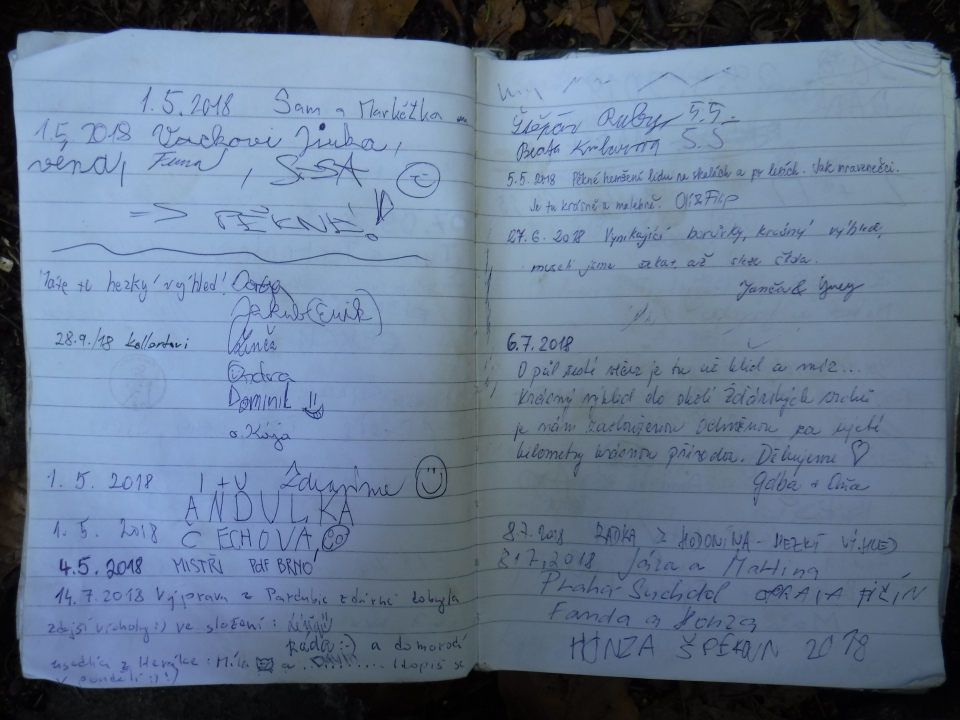 1.5.2018 Sam a Markétka
1.5.2018 Vackovi Jirka,
věna, Fina, SÁSA
=> PĚKNÉ!
Máte tu hezký výhled!
Jakub (Enrik)
28.9./18 Kollartovi
Ondra
Dominik
o. Kája
1. 5. 2018 I + V Zdravíme
ANDULKA
1. 5. 2018 ČECHOVA
4.5.2018 MISTŘI PdF BRNO
14.7.2018 Výprava z Pardubic zdárně dobyla
zdejší vrcholy :) ve složení:
Rada :-) a domorodá
z Herálce: Míla a ... (dopis se
v pondělí :) !)
Štěpán Ruby 5.5.
Beata 5.5
5.5.2018 Pěkné hemžení lidu na skalách a po lesích. Jak mravenečci.
Je tu krásně a malebně. Oli & Filip
27.6. 2018 Vynikající borůvky, krásný výhled,
museli jsme čekat, až
Janča &
6.7.2018
O půl šesté večer je tu už klid a mír...
Krásný výhled do okolí Žďárských vrchů
je nám zaslouženou odměnou za ujeté
kilometry krásnou přírodou. Děkujeme ♡
Gába + Ota
8.7.2018 RADKA Z HODONÍNA - HEZKÝ VÝHLED
8.7.2018 Jára a Martina
Praha Suchdol OPRAVA JIČÍN
Fanda a Honza
HONZA 2018